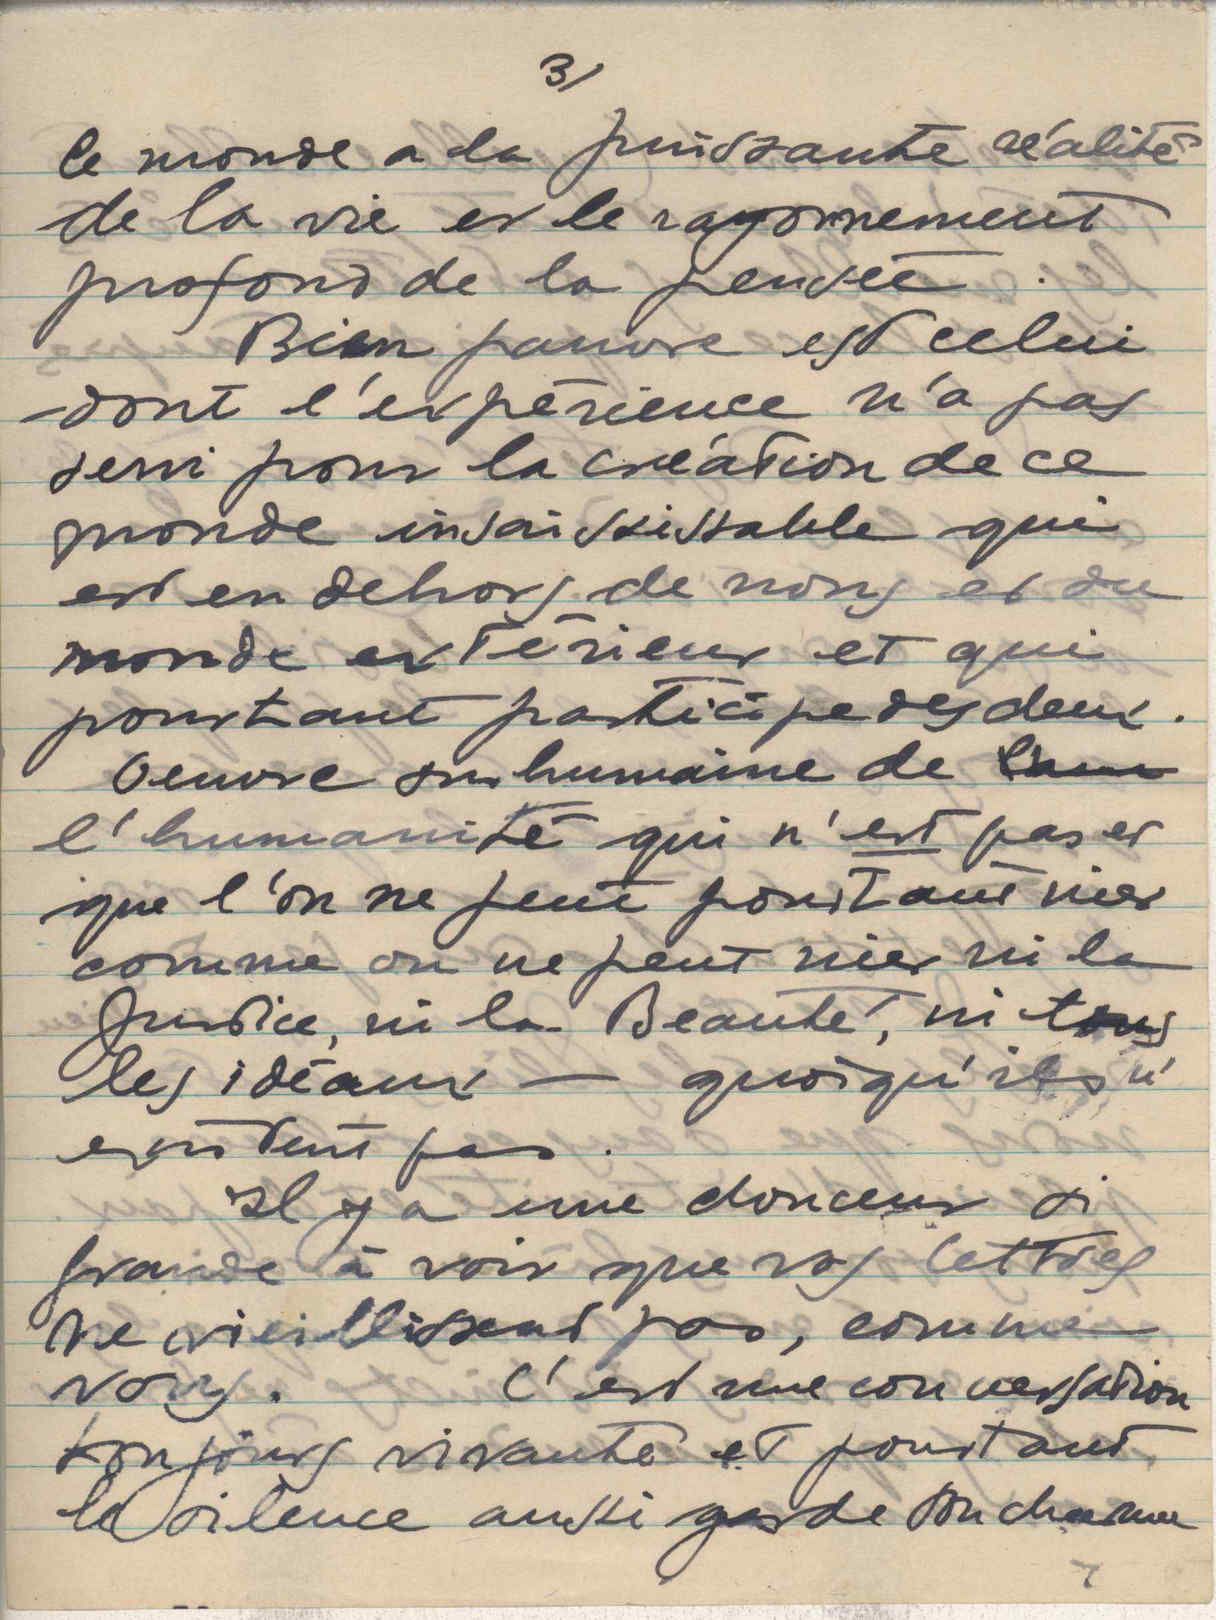 3/
Ce monde a la puissante réalité
de la vie et le rayonnement
profond de la pensée.
Bien pauvre est celui
dont l'expérience n'a pas
servi pour la création de ce
monde insaisissable qui
est en dehors de nous et du
monde extérieur et qui
pourtant participe des deux.
Oeuvre surhumaine de
l'humanité qui n'est pas et
que l'on ne peut pourtant nier
comme on ne peut nier ni la
Justice, ni la Beauté, ni tous
les idéaux — quoiqu'ils n'
existent pas.
Il y a une douceur si
grande à voir que vos lettres
ne vieillissent pas, comme
vous. C'est une conversation
toujours vivante et pourtant
le silence aussi garde son charme